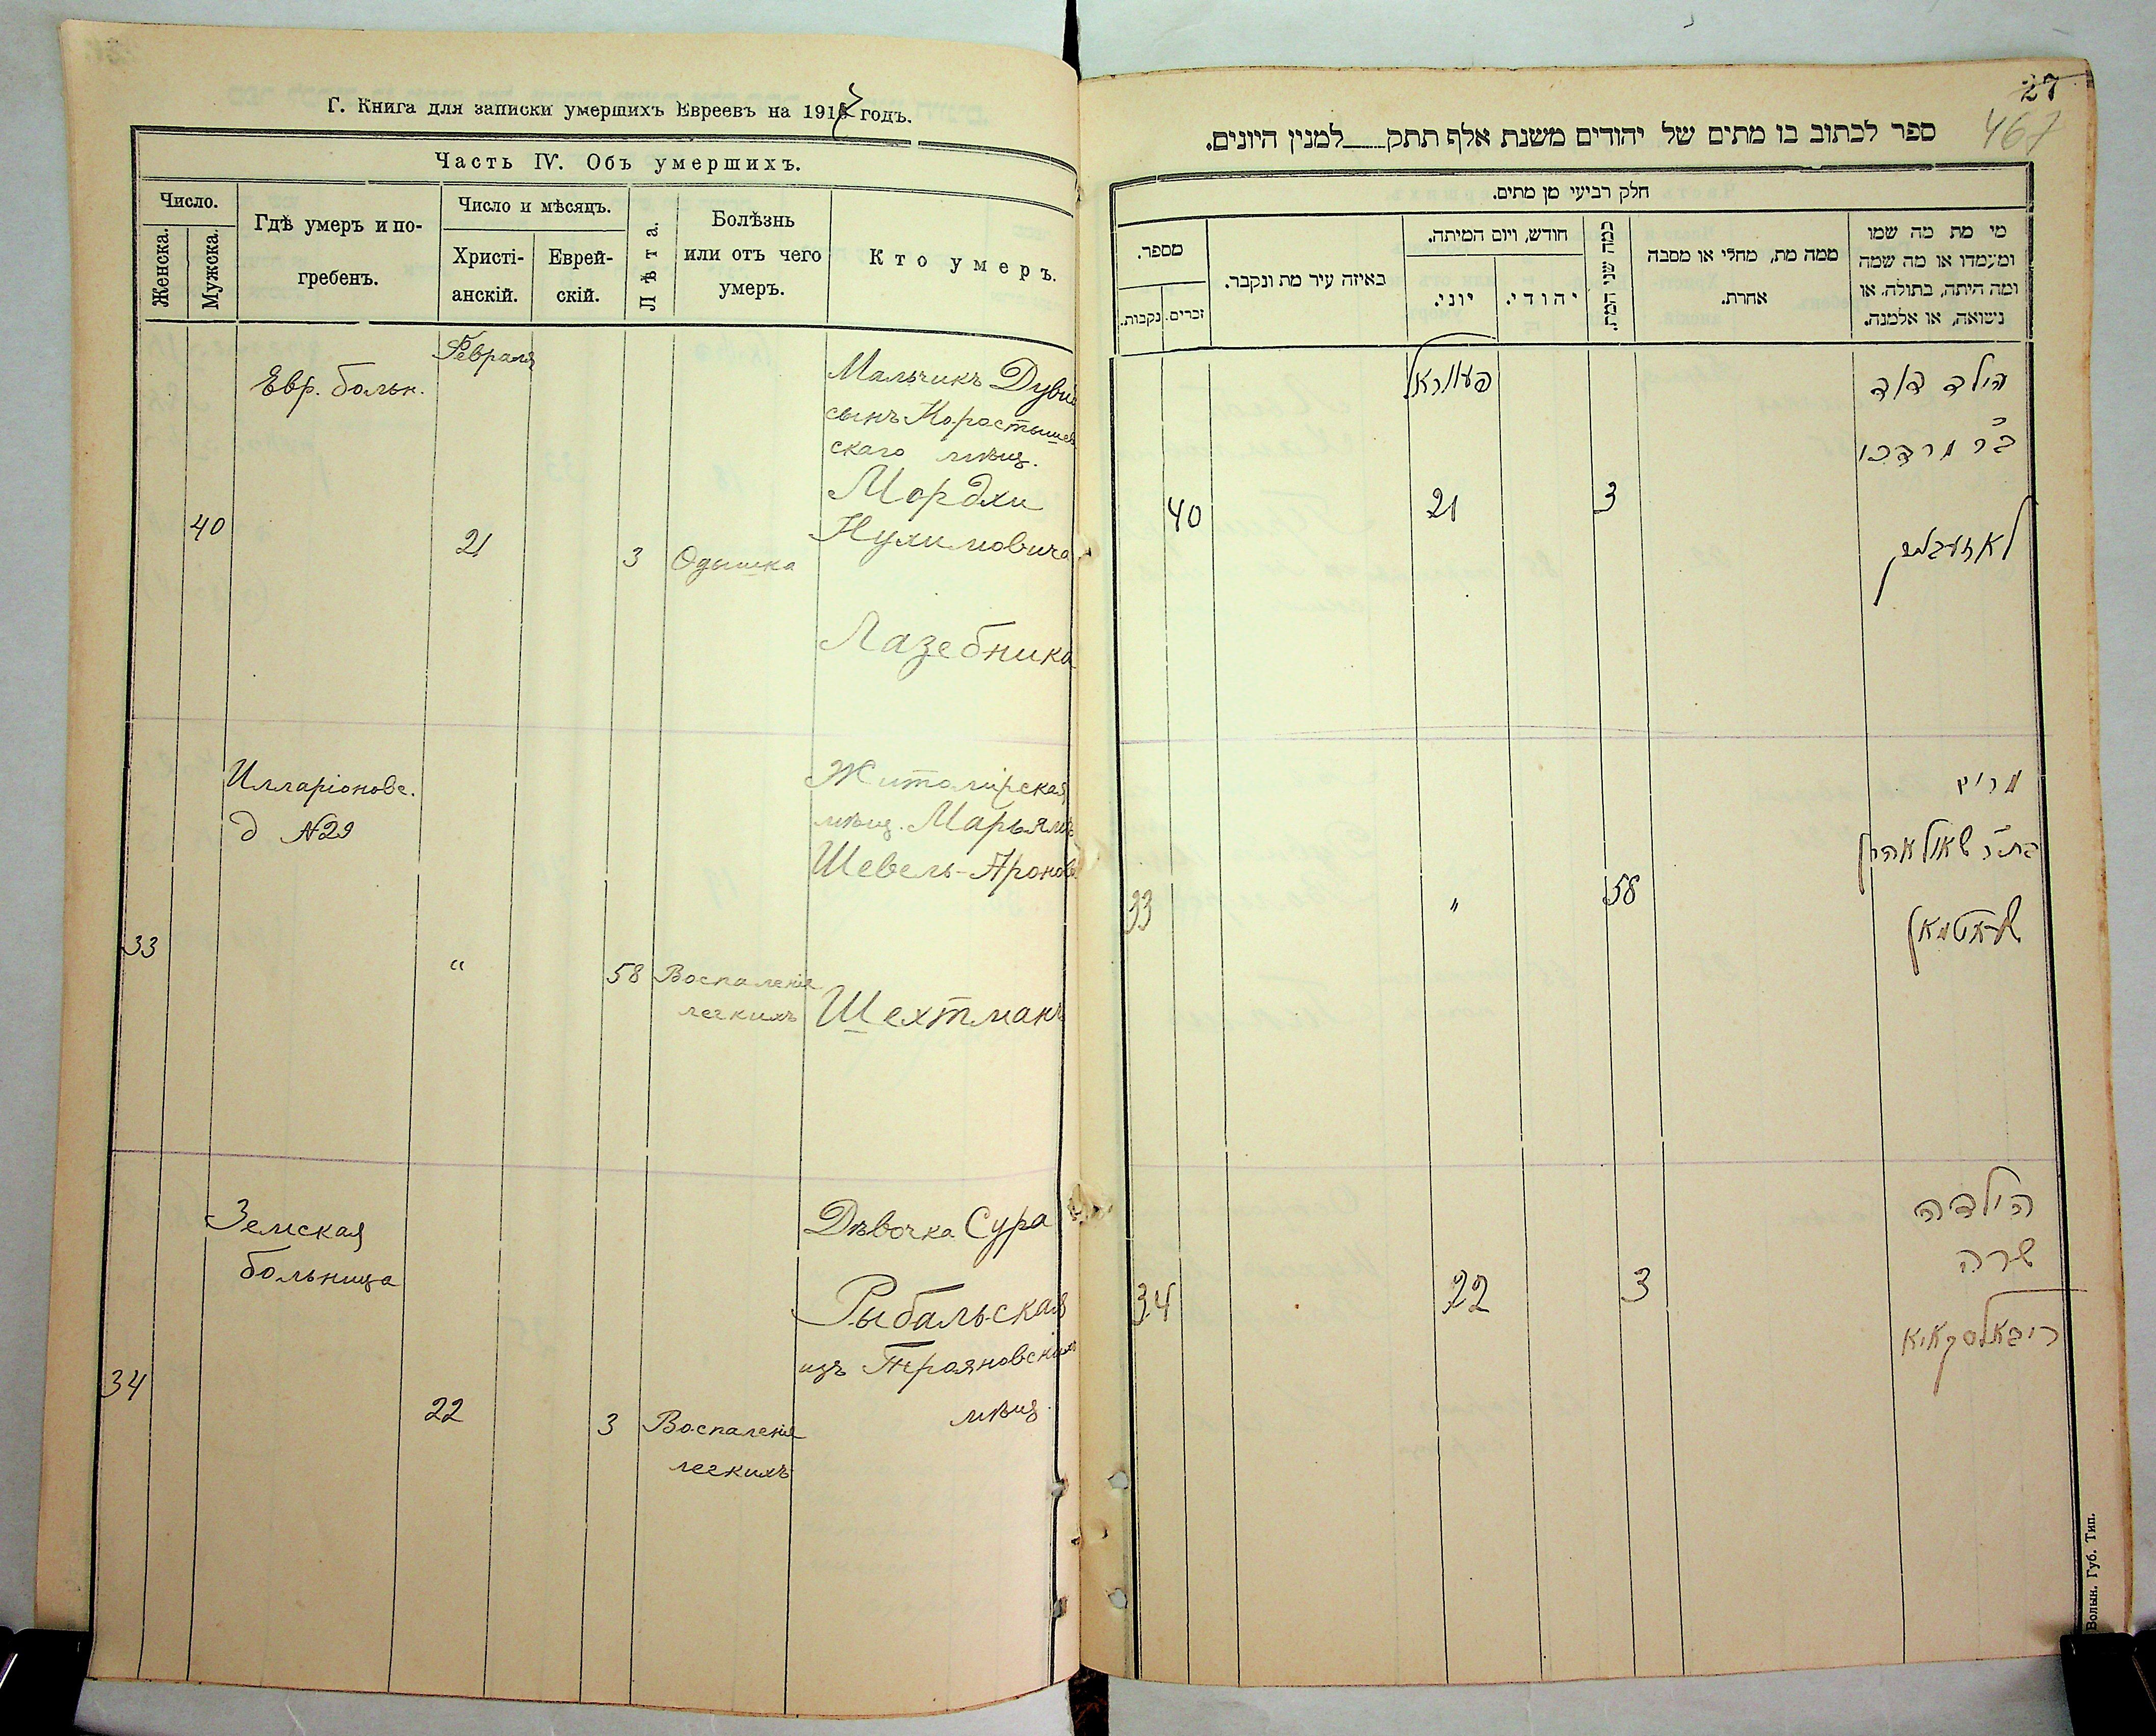 Г. Книга для записки умершихъ Евреевъ на 1917 годъ.
Часть IV. Объ умершихъ.
Число.
Женска.
Мужска.
Гдѣ умеръ и по-
гребенъ.
Число и мѣсяцъ.
Христі-
анскій.
Еврей-
скій.
Лѣта.
Болѣзнь
или отъ чего
умеръ.
Кто умеръ.
Февраля
Евр. больн.
40
21
3
Одышка
Мальчикъ Дувид
сынъ Коростышев
скаго мѣщ.
Мордхи
Нухимовича
Лазебника
Илларіоновс.
д №29
33
"
58
Воспаленіе
легкихъ
Житомірская
мѣщ. Марьямъ
Шевель-Ароновна
Шехтманъ
Земская
больница
34
22
3
Воспаленіе
легкихъ
Дѣвочка Сура
Рыбальская
изъ Трояновскихъ
мѣщ.
27
467
ספר לכתוב בו מתים של יהודים משנת אלף תתק___למנין היונים.
חלק רביעי מן מתים.
מספר.
נקבות.
זכרים.
באיזה עיר מת ונקבר.
חודש, ויום המיתה.
יוני.
יהודי.
כמה שני המת.
ממה מת, מחלי או מסבה
אחרת.
מי מת מה שמו
ומעמדו או מה שמה
ומה היתה, בתולה, או
נשואה, או אלמנה.
פעווראל
40
21
3
הילד דוד
ב״ר מרדכי
לאזעבניק
33
"
58
מרים
בת״ר שאול אהרן
שעכטמאן
34
22
3
הילדה
שרה
ריבאלסקאיא
Волын. Губ. Тип.